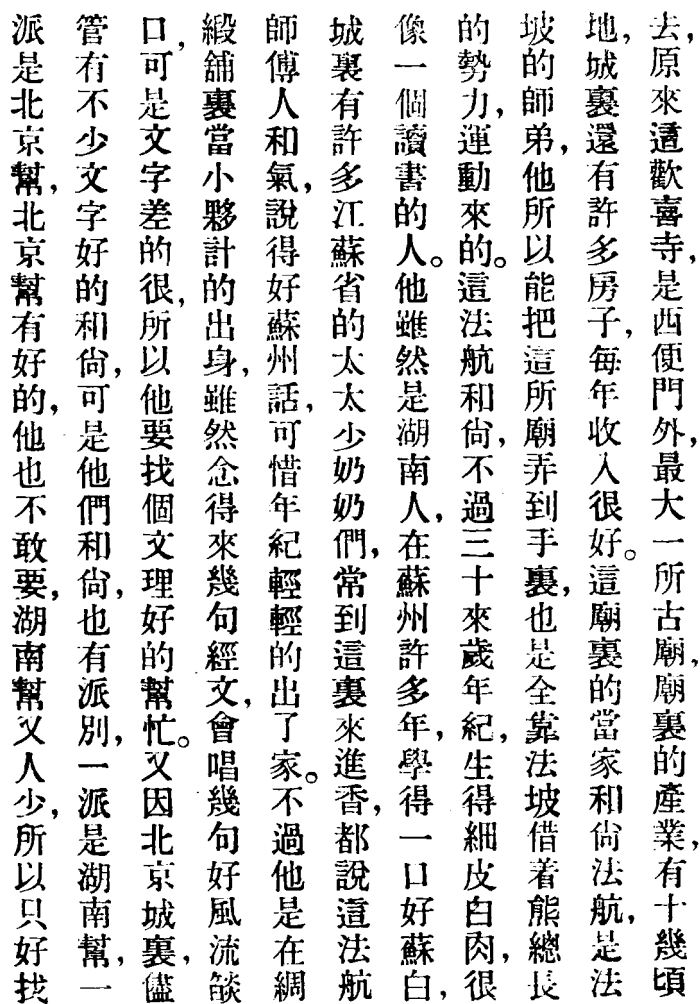 去,原來這歡喜寺,是西便門外,最大一所古廟,廟裏的產業,有十幾頃
地,城裏還有許多房子,每年收入很好。這廟裏的當家和尙法航,是法
坡的師弟,他所以能把這所廟弄到手裏,也是全靠法坡借着熊總長
的勢力,運動來的。這法航和尙,不過三十來歲年紀,生得細皮白肉,很
像一個讀書的人。他雖然是湖南人,在蘇州許多年,學得一口好蘇白,
城裏有許多江蘇省的太太少奶奶們,常到這裏來進香,都說這法航
師傅人和氣,說得好蘇州話,可惜年紀輕輕的出了家。不過他是在綢
緞舖裏當小夥計的出身,雖然念得來幾句經文,會唱幾句好風流燄
口,可是文字差的很,所以他要找個文理好的幫忙。又因北京城裏,儘
管有不少文字好的和尙,可是他們和尙,也有派別,一派是湖南幫,一
派是北京幫,北京幫有好的,他也不敢要,湖南幫又人少,所以只好找